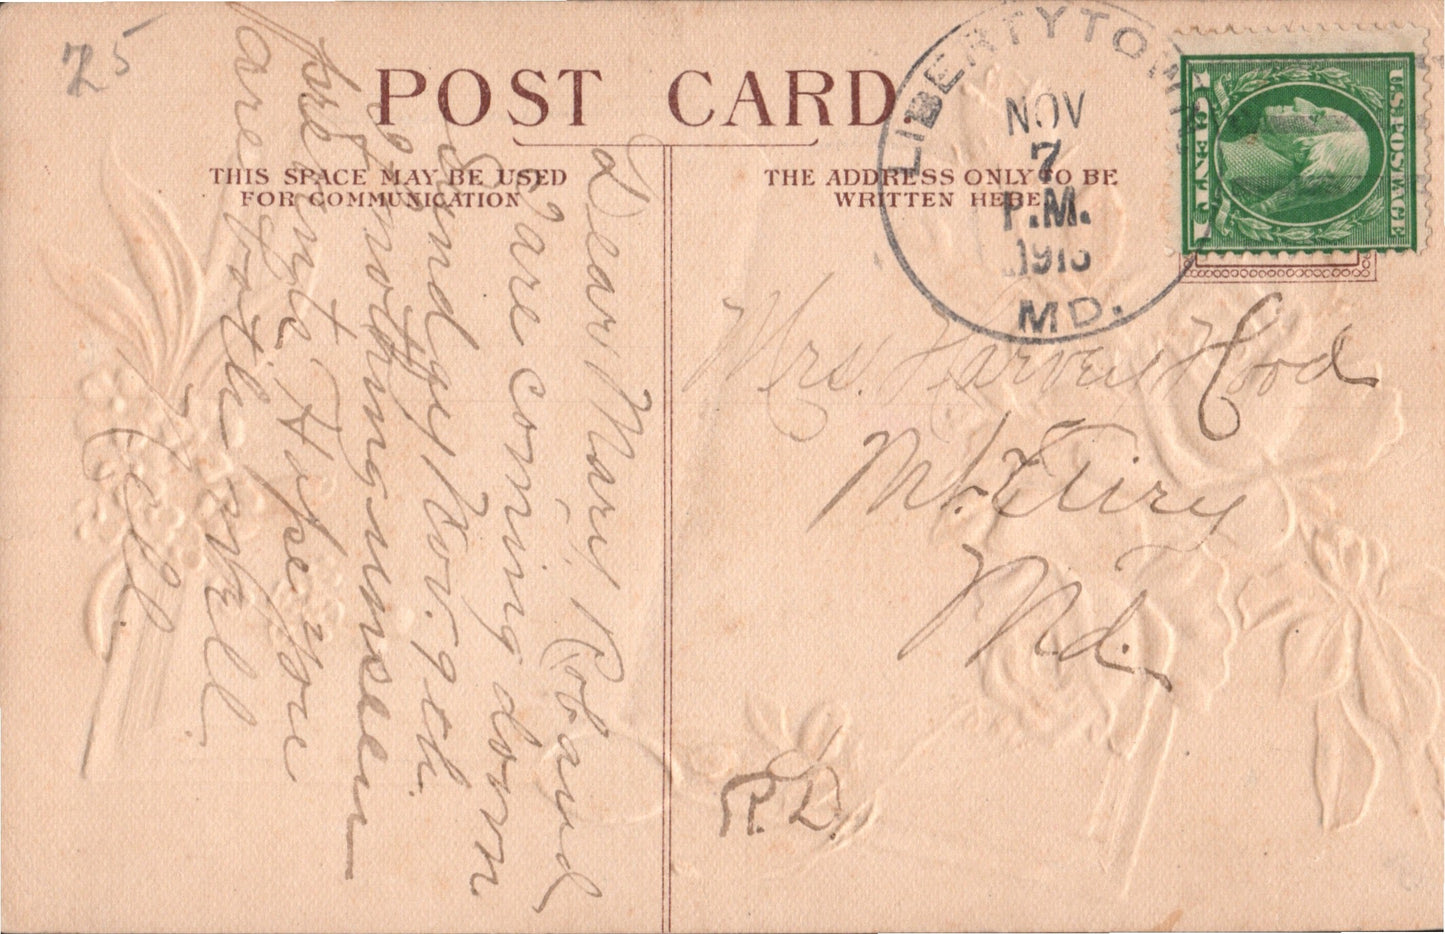 25
POST CARD.
THIS SPACE MAY BE USED
FOR COMMUNICATION
Dear Mary, Rob and
I are coming down
Sunday Nov. 9th.
if nothing unseen
prevents. Hope you
are both well.
THE ADDRESS ONLY TO BE
WRITTEN HERE
LIBERTYTOWN
NOV
7
P.M.
1913
MD.
U.S. POSTAGE
1 CENT 1
Mrs. Harvey Hood
Mt. Airy
Md.
R.D.